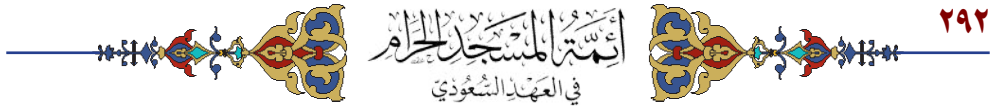 ٢٩٢
أَئِمَّةُ المَسْجِدِ الحَرَامِ
فِي العَهْدِ السُّعُودِيّ